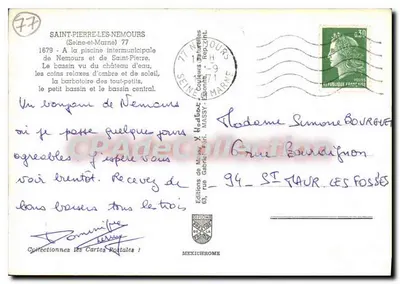 77
SAINT-PIERRE-LES-NEMOURS
(Seine-et-Marne) 77
1679 - A la piscine intermunicipale
de Nemours et de Saint-Pierre.
Le bassin vu du château d'eau,
les coins relaxes d'ombre et de soleil,
la barbotoire des tout-petits,
le petit bassin et le bassin central.
Un bonjour de Nemours
où je passe quelques jours
agréables. J'espère vous
voir bientôt. Recevez de
bons baisers tous les trois
Dominique
Collectionnez les Cartes Postales !
MEXICHROME
77 NEMOURS
SEINE ET MARNE
0,30
REPUBLIQUE FRANCAISE
Madame Simone BOURGUET
94 - ST MAUR. LES FOSSES